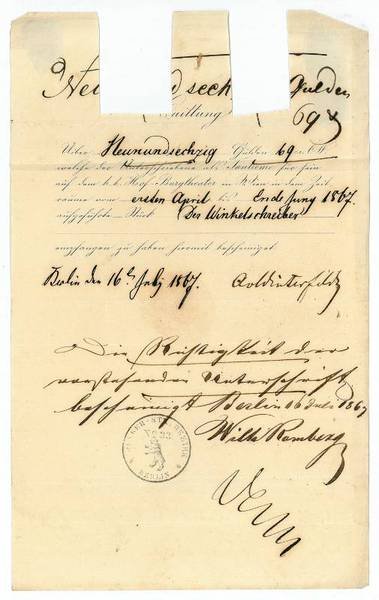 Neu nd sech Gulden
uittung
69
Über Neunundsechzig Gulden 69 ö. W.
welche der Unterzeichnete als Tantieme für sein
auf dem k. k. Hof-Burgtheater in Wien in dem Zeit-
raume vom ersten April bis Ende Juny 1867.
aufgeführtes Stück Der Winkelschreiber
empfangen zu haben hiermit bescheiniget
Berlin den 16t July 1867. A v Winterfeld
Die Richtigkeit der
vorstehenden Unterschrift
bescheinigt Berlin 16 Juli 1867
Wilh Ramberg
BERLIN